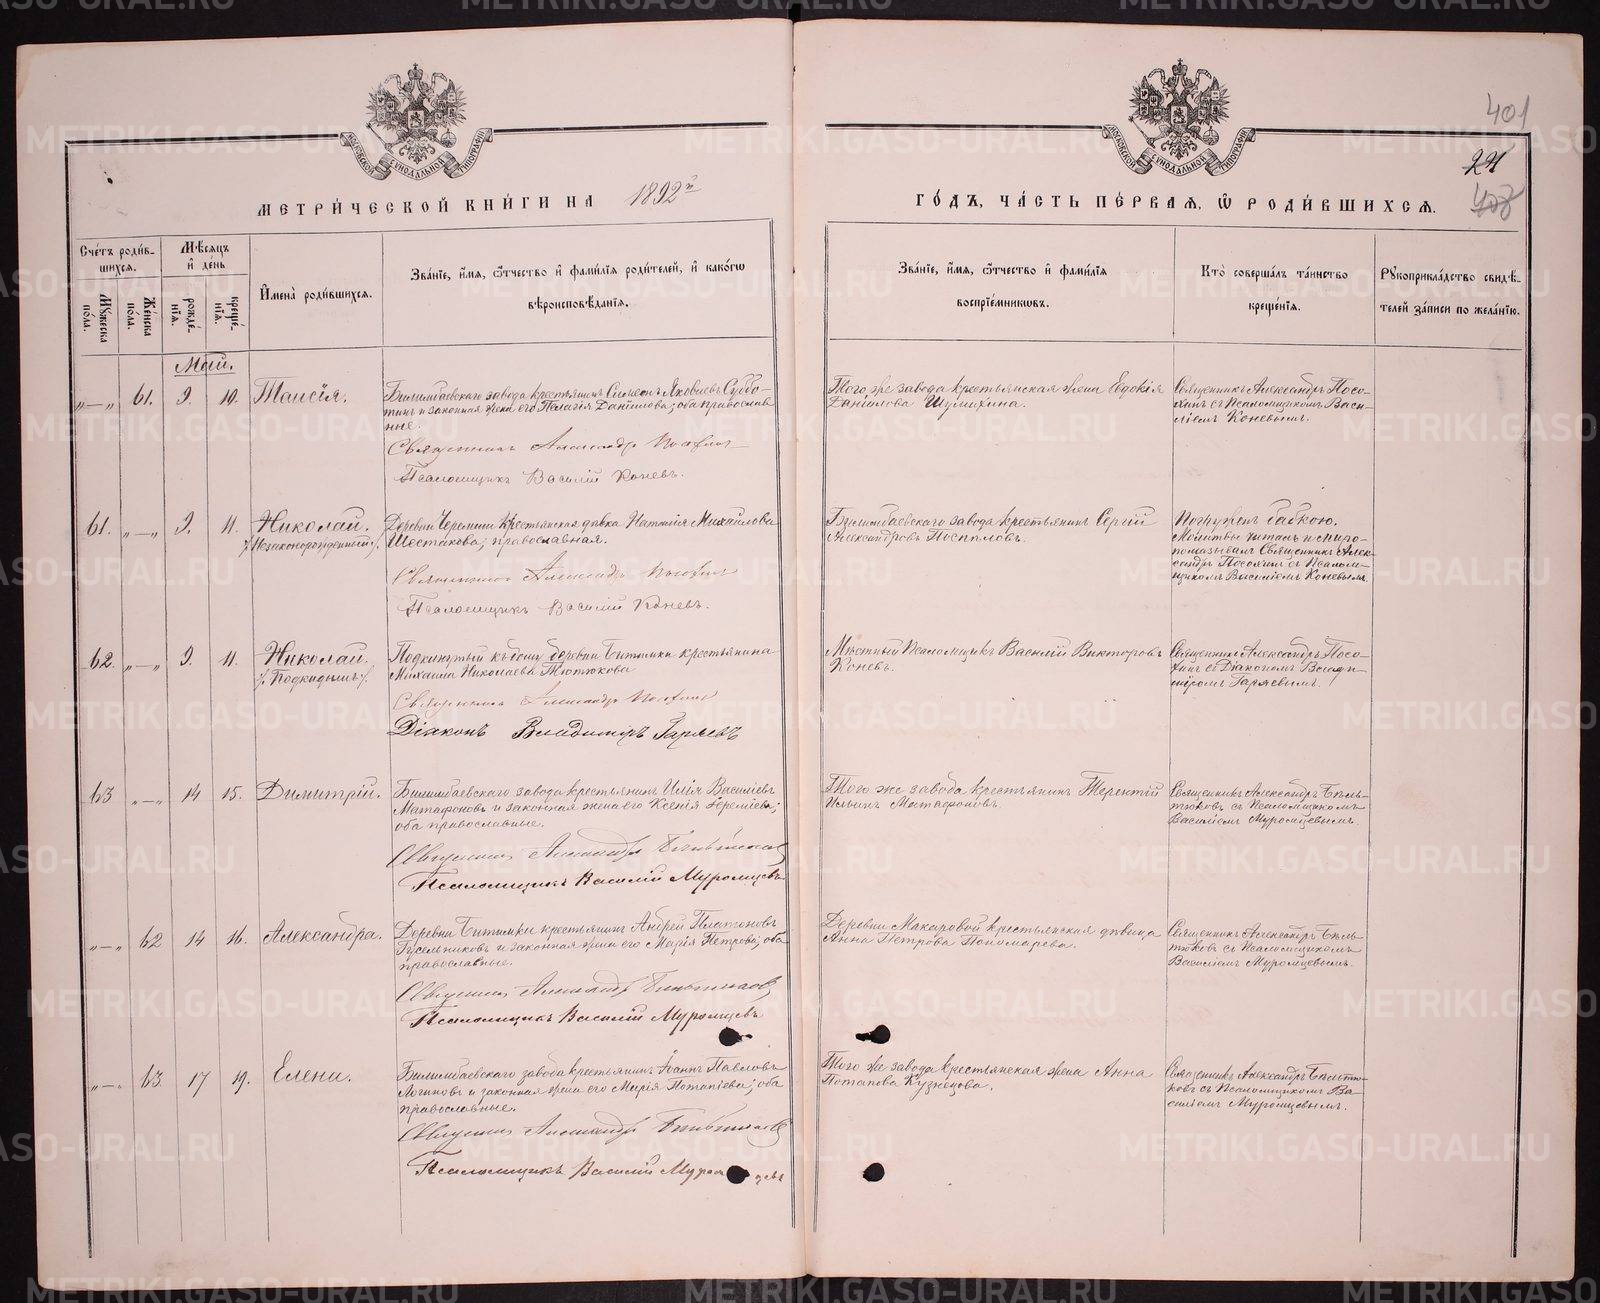 401
21
408
МОСКОВСКОЙ СѴНОДАЛЬНОЙ ТИПОГРАФІИ
МОСКОВСКОЙ СѴНОДАЛЬНОЙ ТИПОГРАФІИ
МЕТРИ́ЧЕСКОЙ КНИ́ГИ НА 1892й
ГО́ДЪ, ЧА́СТЬ ПЕ́РВАЯ, Ѿ РОДИ́ВШИХСЯ.
Сче́тъ роди́в-
шихся.
Мѣ́сяцъ
и де́нь
Мꙋ́жеска
по́ла.
Же́нска
по́ла.
рожде́-
нія.
креще́-
нія.
Имена̀ роди́вшихся.
Зва́ніе, и́мя, ѻ́тчество и фами́лія роди́телей, и како́гѡ
вѣроисповѣ́данія.
Зва́ніе, и́мя, ѻ́тчество и фами́лія
воспріе́мникѡвъ.
Кто̀ соверша́лъ та́инство
креще́нія.
Рꙋкоприкла́дство свидѣ́-
телей за́писи по жела́нію.
Май.
„—„ 61. 9. 10. Таисія.
Билимбаевскаго завода крестьянинъ Симеонъ Яковлевъ Суббо-
тинъ и законная жена его Пелагія Даніилова; оба православ
ные.
Священникъ Александръ Посохинъ
Псаломщикъ Василій Коневъ.
Того же завода крестьянская жена Евдокія
Даніилова Шумихина.
Священникъ Александръ Посо-
хинъ съ Псаломщикомъ Васи-
ліемъ Коневымъ.
61. „—„ 9. 11. Николай.
Незаконорожденный
Деревни Черемши крестьянская дѣвка Наталія Михайлова
Шестакова; православная.
Священникъ Александръ Посохинъ
Псаломщикъ Василій Коневъ.
Билимбаевскаго завода крестьянинъ Сергій
Александровъ Поспѣловъ.
Погруженъ бабкою.
Молитвы читалъ и миро-
помазывалъ Священникъ Алек-
сандръ Посохинъ съ Псалом-
щикомъ Василіемъ Коневымъ.
62. „—„ 9. 11. Николай.
Подкидышъ
Подкинутый къ дому деревни Битимки крестьянина
Михаила Николаева Тютюкова
Священникъ Александръ Посохинъ
Діаконъ Владиміръ Гаряевъ
Мѣстный Псаломщикъ Василій Викторовъ
Коневъ.
Священникъ Александръ Посо-
хинъ съ Діакономъ Влади-
міромъ Гаряевымъ.
63 „—„ 14 15. Димитрій.
Билимбаевскаго завода крестьянинъ Илія Василіевъ
Матафоновъ и законная жена его Ксенія Іереміева;
оба православные.
Священникъ Александръ Бѣльтюковъ
Псаломщикъ Василій Муромцевъ
Того же завода крестьянинъ Терентій
Ильинъ Матафоновъ.
Священникъ Александръ Бѣль-
тюковъ съ Псаломщикомъ
Василіемъ Муромцевымъ.
„—„ 62 14 16. Александра.
Деревни Битимки крестьянинъ Андрей Платоновъ
Гусельниковъ и законная жена его Марія Петрова; оба
православные.
Священникъ Александръ Бѣльтюковъ
Псаломщикъ Василій Муромцевъ
Деревни Макаровой крестьянская дѣвица
Анна Петрова Пономарева.
Священникъ Александръ Бѣль-
тюковъ съ Псаломщикомъ
Василіемъ Муромцевымъ.
„—„ 63. 17 19. Елена.
Билимбаевскаго завода крестьянинъ Іоаннъ Павловъ
Логиновъ и законная жена его Марія Потапіева; оба
православные.
Священникъ Александръ Бѣльтюковъ
Псаломщикъ Василій Муромцевъ
Того же завода крестьянская жена Анна
Потапова Кузнецова.
Священникъ Александръ Бѣльтю-
ковъ съ Псаломщикомъ Ва-
силіемъ Муромцевымъ.
METRIKI.GASO-URAL.RU